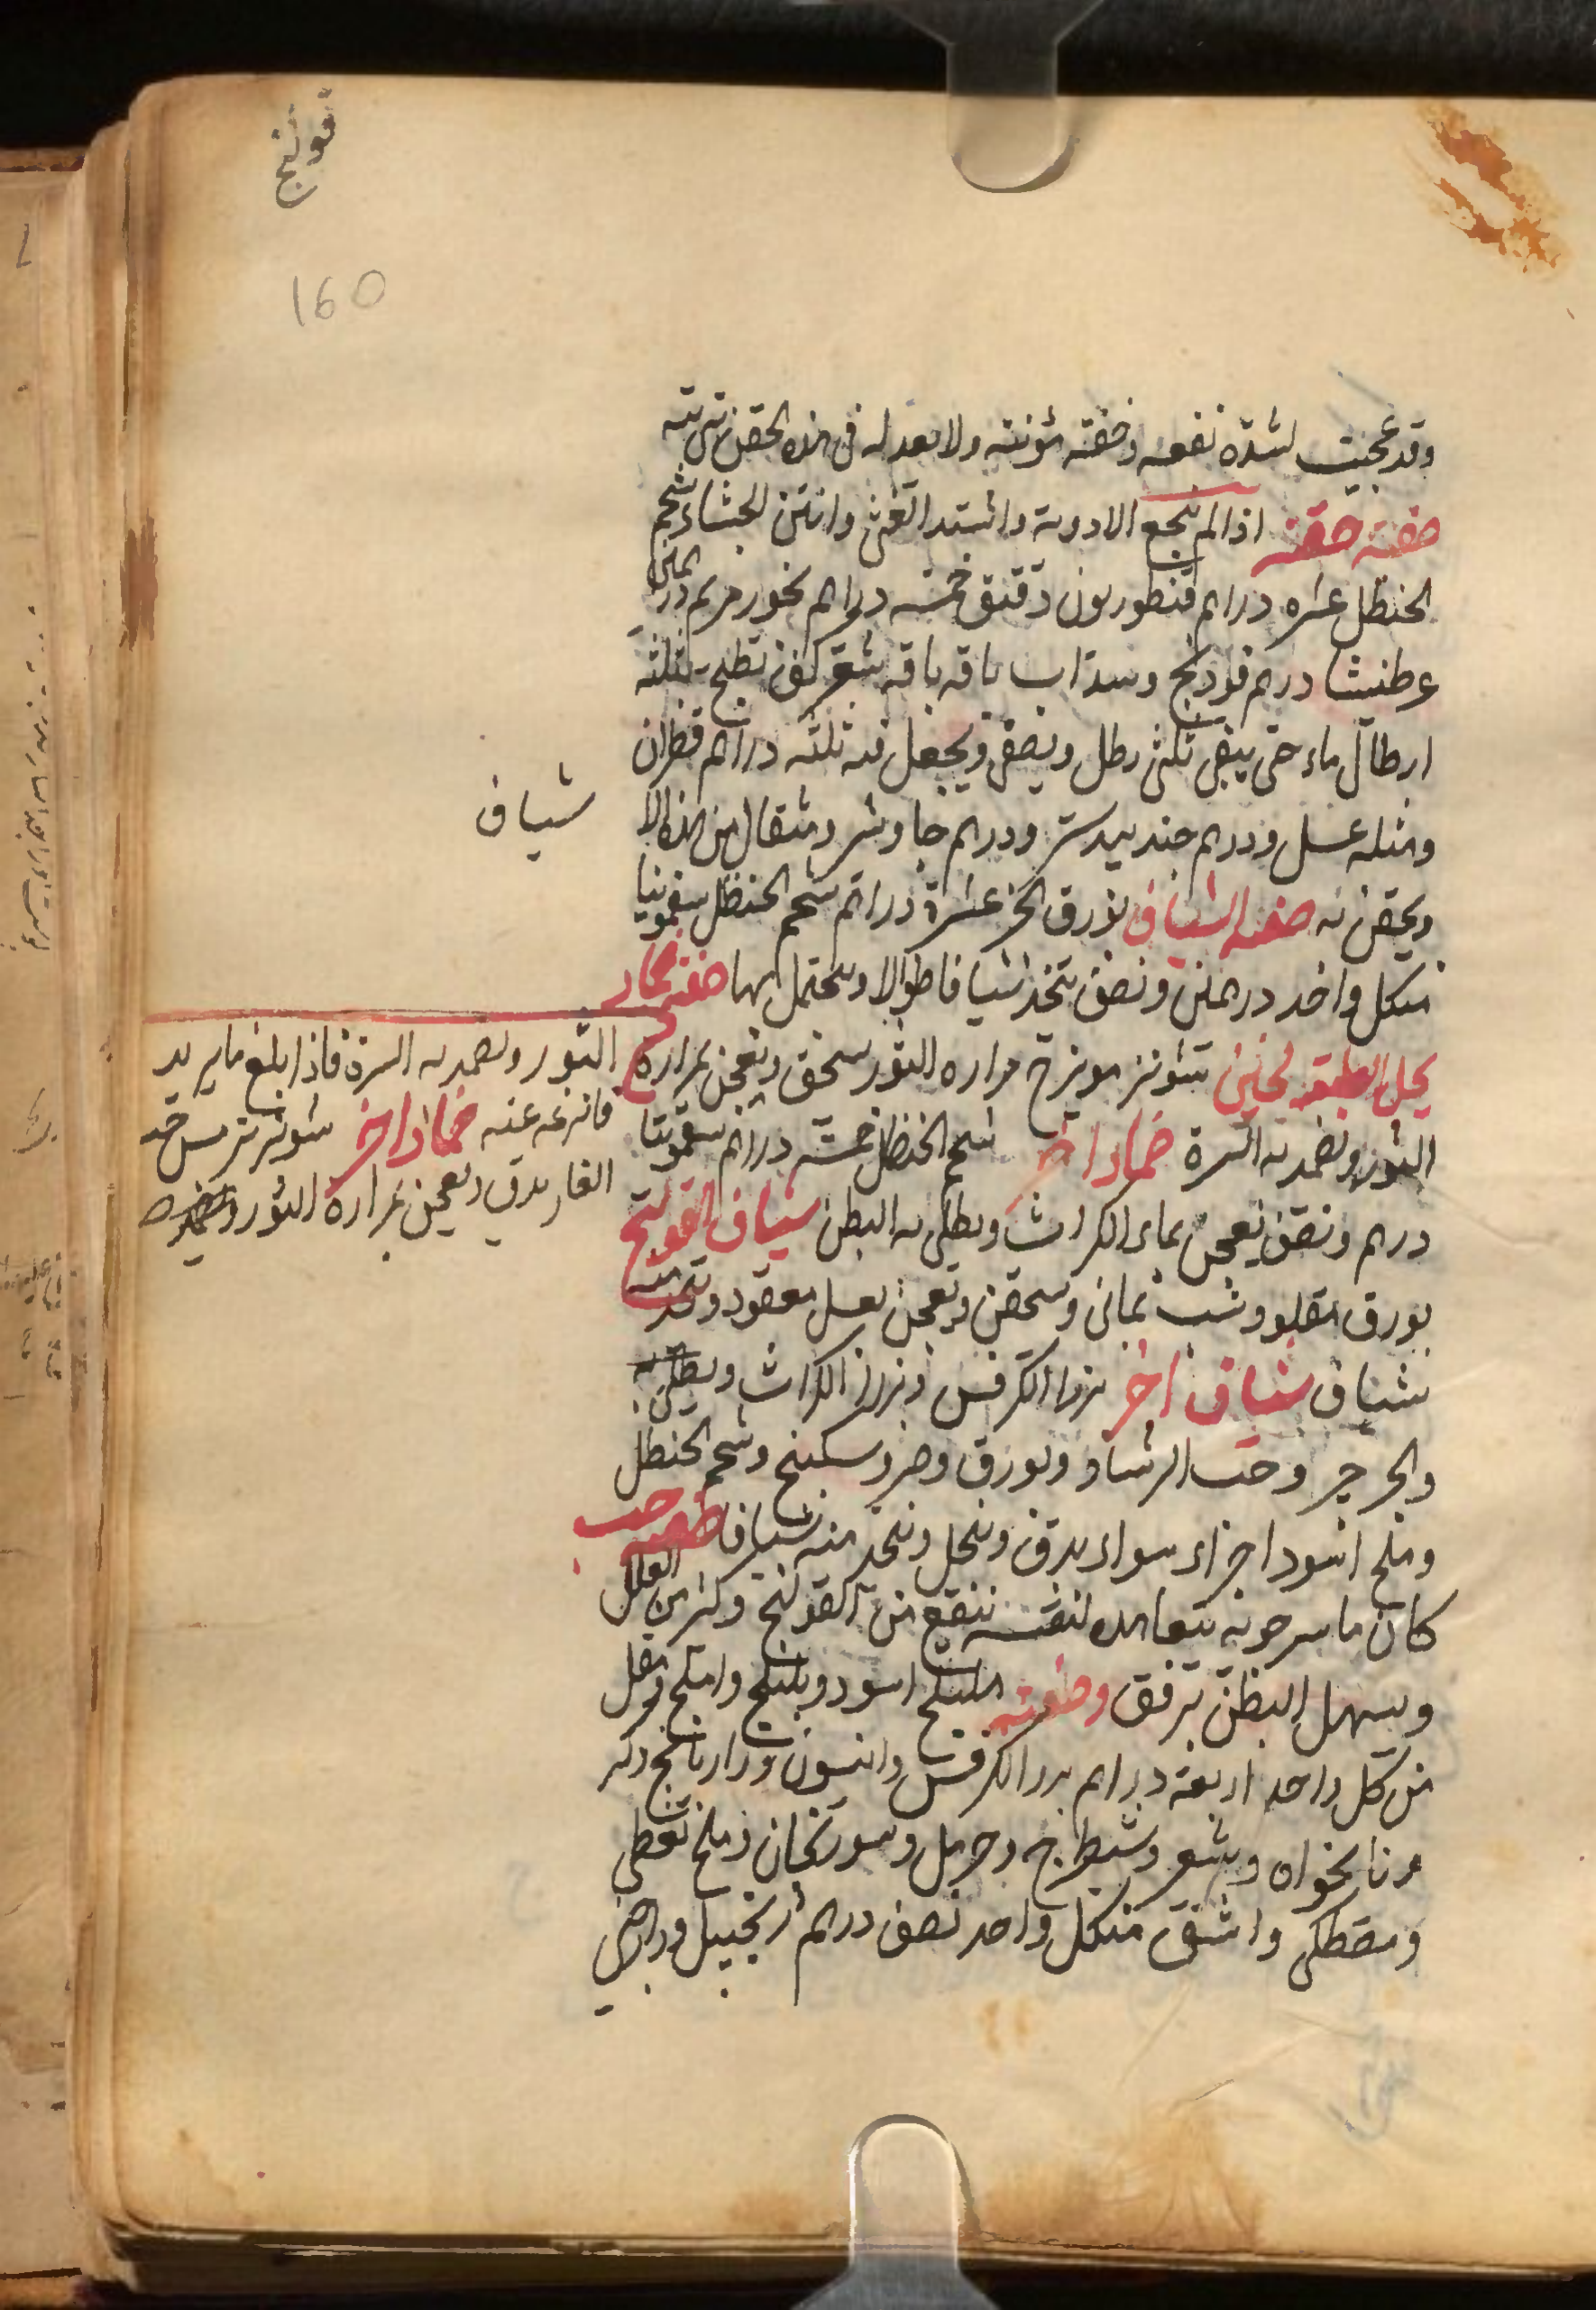 قولنج
160
وقد عجبت لشدة نفعه وخفة مؤنته ولا يعدله في هذه الحقن شيء بته
صفة حقنة اذا لم ينجع الادوية واشتد الغثي وانتن الجشاء شحم
الحنظل عشره دراهم قنطوريون دقيق خمسة دراهم بخور مريم درهمين
عرطنيثا درهم فودنج وسذاب باقه باقه كف تطبخ بثلثة
ارطال ماء حتى يبقى ثلثي رطل ويصفى ويجعل فيه ثلثه دراهم قطران
ومثله عسل ودرهم جندبيدستر ودرهم جاوشير ومثقال من هذه
شياف
ويحقن به صفة الشياف بورق الخبز عشرة دراهم شحم الحنظل سقمونيا
من كل واحد درهمين ونصف يتخذ شيافا طوالا ويحتمل بها صفة ضماد
يحل الطبيعة شونيز مويزج مراره الثور يسحق ويعجن بمرارة
الثور ويضمد به السرة ضماد اخر شحم الحنظل خمسة دراهم سقمونيا
درهم ونصف يعجن بماء الكراث ويطلى به البطن شياف القولنج
بورق مقلو وشب يماني ويسحقن ويعجن بعسل معقود ويتخذ منه
شياف شياف اخر بزر الكرفس وبزر الكراث
والجرجير وحب الرشاد وبورق وصبر وسكبينج وشحم الحنظل
وملح اسود اجزاء سواء يدق وينخل ويتخذ منه شيافا صفة حب
كان ماسرجويه يتعاهده لنفسه ينفع من القولنج وكثير من العلل
ويسهل البطن برفق وصفته هليلج اسود وبليلج واملج ومقل
من كل واحد اربعة دراهم بزر الكرفس وانيسون ورازيانج
ونانخواه وشيطرج وحرمل وسورنجان وملح نفطي
ومصطكى واشق من كل واحد نصف درهم زنجبيل ودارصيني
الثور ويضمد به السرة فاذا بلغ ما يريد
فانزعه عنه ضماد اخر شونيز ترمس حب
الغار يدق ويعجن بمرارة الثور ويضمد